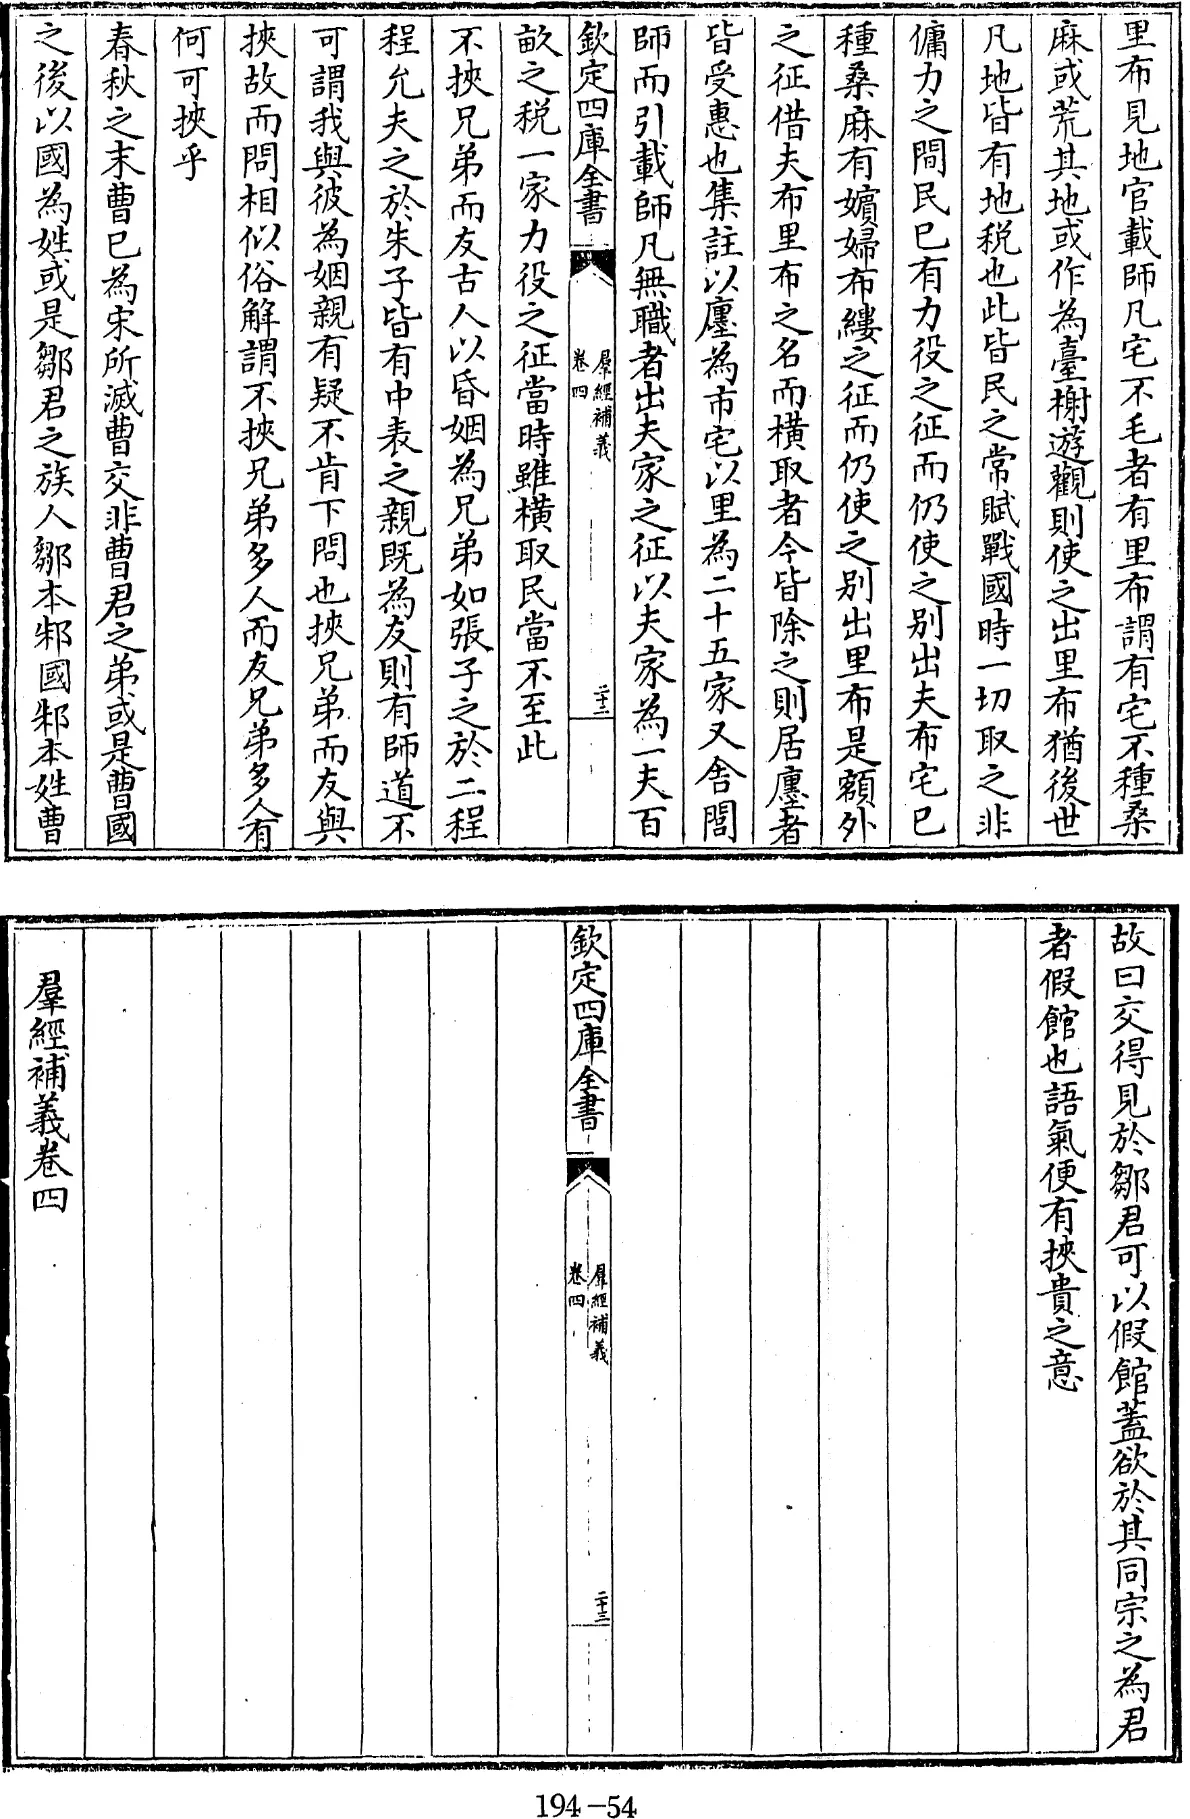 里布見地官載師凡宅不毛者有里布謂有宅不種桑
麻或荒其地或作為臺榭遊觀則使之出里布猶後世
凡地皆有地税也此皆民之常賦戰國時一切取之非
傭力之間民已有力役之征而仍使之别出夫布宅已
種桑麻有嬪婦布縷之征而仍使之别出里布是額外
之征借夫布里布之名而横取者今皆除之則居廛者
皆受惠也集註以廛為市宅以里為二十五家又舍閭
師而引載師凡無職者出夫家之征以夫家為一夫百
欽定四庫全書
羣經補義
卷四
二十二
畝之税一家力役之征當時雖横取民當不至此
不挾兄弟而友古人以昏姻為兄弟如張子之於二程
程允夫之於朱子皆有中表之親既為友則有師道不
可謂我與彼為姻親有疑不肯下問也挾兄弟而友與
挾故而問相似俗解謂不挾兄弟多人而友兄弟多人有
何可挾乎
春秋之末曹已為宋所滅曹交非曹君之弟或是曹國
之後以國為姓或是鄒君之族人鄒本邾國邾本姓曹
故曰交得見於鄒君可以假館蓋欲於其同宗之為君
者假館也語氣便有挾貴之意
欽定四庫全書
羣經補義
卷四
二十三
羣經補義卷四
194-54